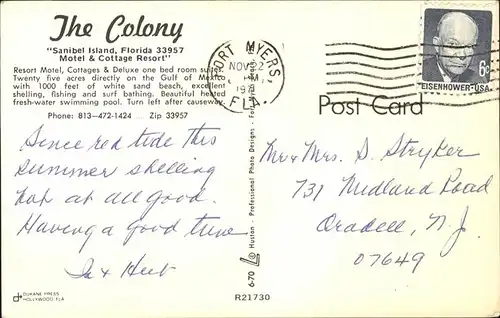 The Colony
"Sanibel Island, Florida 33957
Motel & Cottage Resort"
Resort Motel, Cottages & Deluxe one bed room suites.
Twenty five acres directly on the Gulf of Mexico
with 1000 feet of white sand beach, excellent
shelling, fishing and surf bathing. Beautiful heated
fresh-water swimming pool. Turn left after causeway.
Phone: 813-472-1424 Zip 33957
Since red tide this
summer shelling
not at all good.
Having a good time
& Herb
DUKANE PRESS
HOLLYWOOD, FLA
FORT MYERS
NOV 22
FLA
6c
EISENHOWER·USA
Post Card
Mr & Mrs. S. Stryker
731 Midland Road
Oradell, N.J.
07649
6-70 © Huston - Professional Photo Designs -
R21730